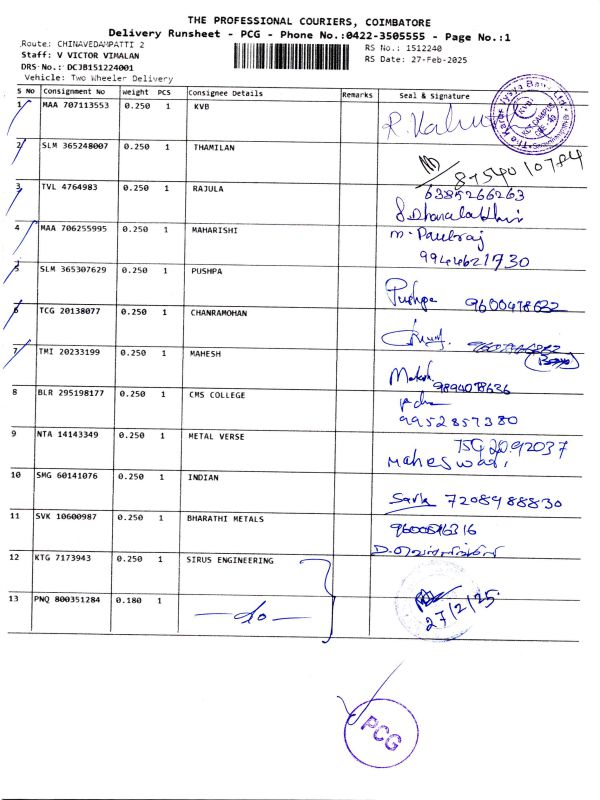 THE PROFESSIONAL COURIERS, COIMBATORE
Delivery Runsheet - PCG - Phone No.:0422-3505555 - Page No.:1
Route: CHINAVEDAMPATTI 2
RS No.: 1512240
Staff: V VICTOR VIMALAN
RS Date: 27-Feb-2025
DRS No.: DCJB151224001
Vehicle: Two Wheeler Delivery
S No Consignment No Weight PCS Consignee Details Remarks Seal & Signature
1 MAA 707113553 0.250 1 KVB
2 SLM 365248007 0.250 1 THAMILAN
8754010784
3 TVL 4764983 0.250 1 RAJULA
6385266263
4 MAA 706255995 0.250 1 MAHARISHI
m. Paulraj
9944621730
5 SLM 365307629 0.250 1 PUSHPA
Pushpa 9600478632
6 TCG 20138077 0.250 1 CHANRAMOHAN
7 TMI 20233199 0.250 1 MAHESH
Mahesh 9894078636
8 BLR 295198177 0.250 1 CMS COLLEGE
9952857380
9 NTA 14143349 0.250 1 METAL VERSE
Maheswari
10 SMG 60141076 0.250 1 INDIAN
7208988830
11 SVK 10600987 0.250 1 BHARATHI METALS
12 KTG 7173943 0.250 1 SIRUS ENGINEERING
13 PNQ 800351284 0.180 1 — do —
27/2/25
PCG